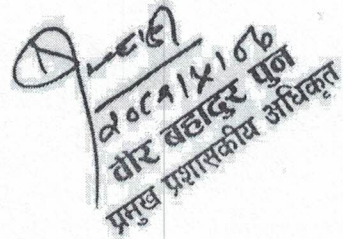 २०८१।५।०७
वीर बहादुर पुन
प्रमुख प्रशासकीय अधिकृत